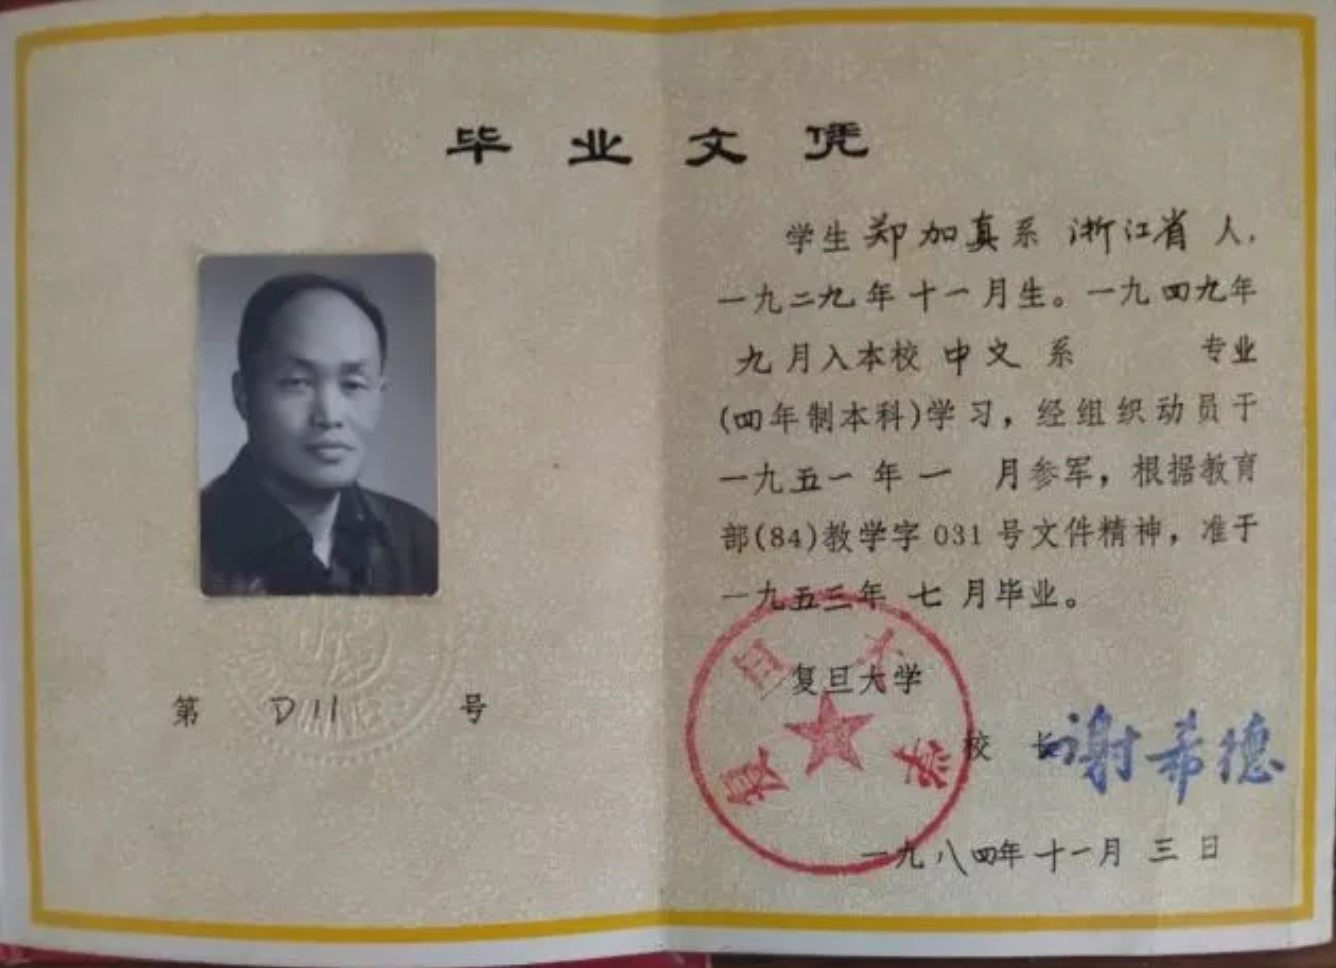 毕业文凭
学生郑加真系浙江省人.
一九二九年十一月生。一九四九年
九月入本校中文系 专业
(四年制本科)学习，经组织动员于
一九五一年一 月参军，根据教育
部(84)教学字031号文件精神，准于
一九五三年七月毕业。
复旦大学
校长 谢希德
一九八四年十一月三日
第 D11 号
复旦大学